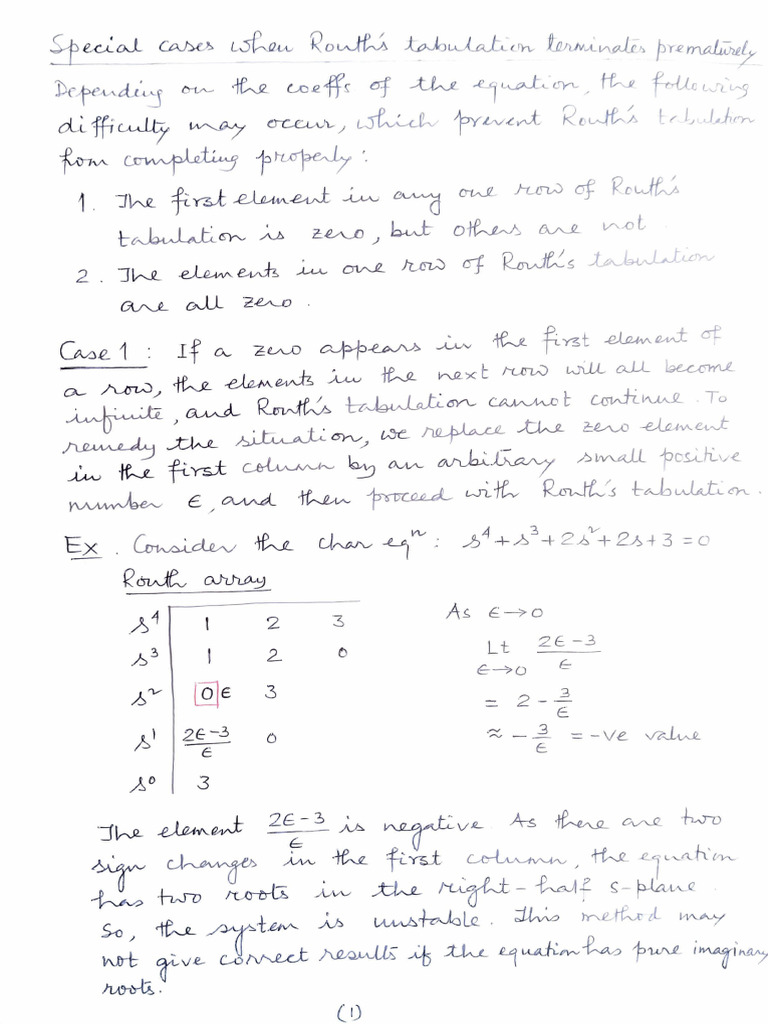 Special cases when Routh's tabulation terminates prematurely
Depending on the coeffs of the equation, the following
difficulty may occur, which prevent Routh's tabulation
from completing properly:
1. The first element in any one row of Routh's
tabulation is zero, but others are not.
2. The elements in one row of Routh's tabulation
are all zero.
Case 1: If a zero appears in the first element of
a row, the elements in the next row will all become
infinite, and Routh's tabulation cannot continue. To
remedy the situation, we replace the zero element
in the first column by an arbitrary small positive
number ϵ, and then proceed with Routh's tabulation.
Ex. Consider the char eqⁿ: s⁴+s³+2s²+2s+3=0
Routh array
s⁴ 1 2 3
s³ 1 2 0
s² 0 ϵ 3
s¹ (2ϵ-3)/ϵ 0
s⁰ 3
As ϵ→0
Lt ϵ→0 (2ϵ-3)/ϵ
= 2 - 3/ϵ
≈ -3/ϵ = -ve value
The element (2ϵ-3)/ϵ is negative. As there are two
sign changes in the first column, the equation
has two roots in the right-half s-plane.
So, the system is unstable. This method may
not give correct results if the equation has pure imaginary
roots.
(1)